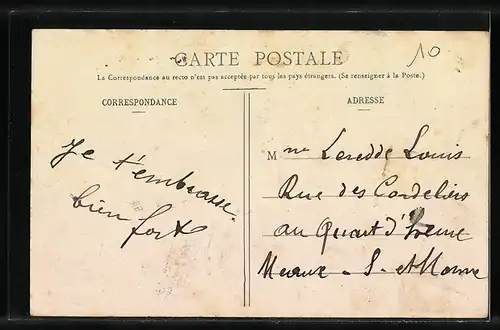 CARTE POSTALE
10
La Correspondance au recto n'est pas acceptée par tous les pays étrangers. (Se renseigner à la Poste.)
CORRESPONDANCE
ADRESSE
Je t'embrasse
bien fort
Mme Leredde Louis
Rue des Cordeliers
au Quart d'
Meaux - S. et Marne